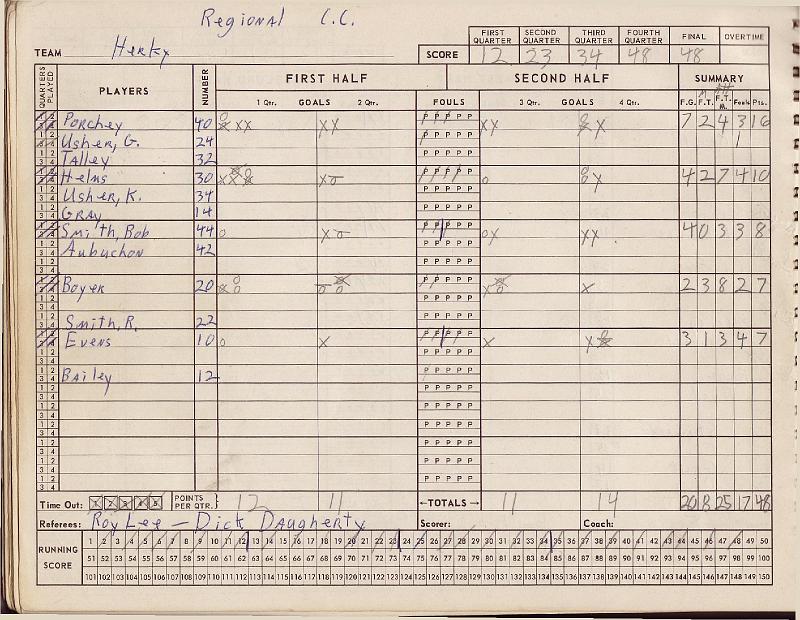 Regional C.C.
TEAM Herky
SCORE
FIRST QUARTER SECOND QUARTER THIRD QUARTER FOURTH QUARTER FINAL OVERTIME
12 23 34 48 48
QUARTERS PLAYED PLAYERS NUMBER FIRST HALF SECOND HALF SUMMARY
1 Qtr. GOALS 2 Qtr. FOULS 3 Qtr. GOALS 4 Qtr. F.G. F.T. F.T. M. Fouls Pts.
Porchey 40 XX XX P P P P P XX X 7 2 4 3 16
Usher, G. 24
Talley 32
Helms 30 XX XO P P P P P O X 4 2 7 4 10
Usher, K. 34
Gray 14
Smith, Bob 44 O XO P P P P P OX XX 4 0 3 3 8
Aubuchon 42
Boyer 20 P P P P P X X 2 3 8 2 7
Smith, R. 22
Evens 10 O X P P P P P X X 3 1 3 4 7
Bailey 12
Time Out: 1 2 3 4 5 POINTS PER QTR. 12 11 ←TOTALS→ 11 14 20 8 25 17 48
Referees: Roy Lee - Dick Daugherty Scorer: Coach:
RUNNING SCORE
1 2 3 4 5 6 7 8 9 10 11 12 13 14 15 16 17 18 19 20 21 22 23 24 25 26 27 28 29 30 31 32 33 34 35 36 37 38 39 40 41 42 43 44 45 46 47 48 49 50
51 52 53 54 55 56 57 58 59 60 61 62 63 64 65 66 67 68 69 70 71 72 73 74 75 76 77 78 79 80 81 82 83 84 85 86 87 88 89 90 91 92 93 94 95 96 97 98 99 100
101 102 103 104 105 106 107 108 109 110 111 112 113 114 115 116 117 118 119 120 121 122 123 124 125 126 127 128 129 130 131 132 133 134 135 136 137 138 139 140 141 142 143 144 145 146 147 148 149 150